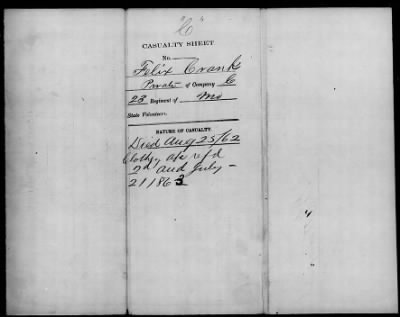 "C"
CASUALTY SHEET
No.
Felix Crank
Private of Company C
23 Regiment of Mo
State Volunteers.
NATURE OF CASUALTY.
Died Aug 25/62
Clothg a/c ref'd
2nd aud July
21 1863